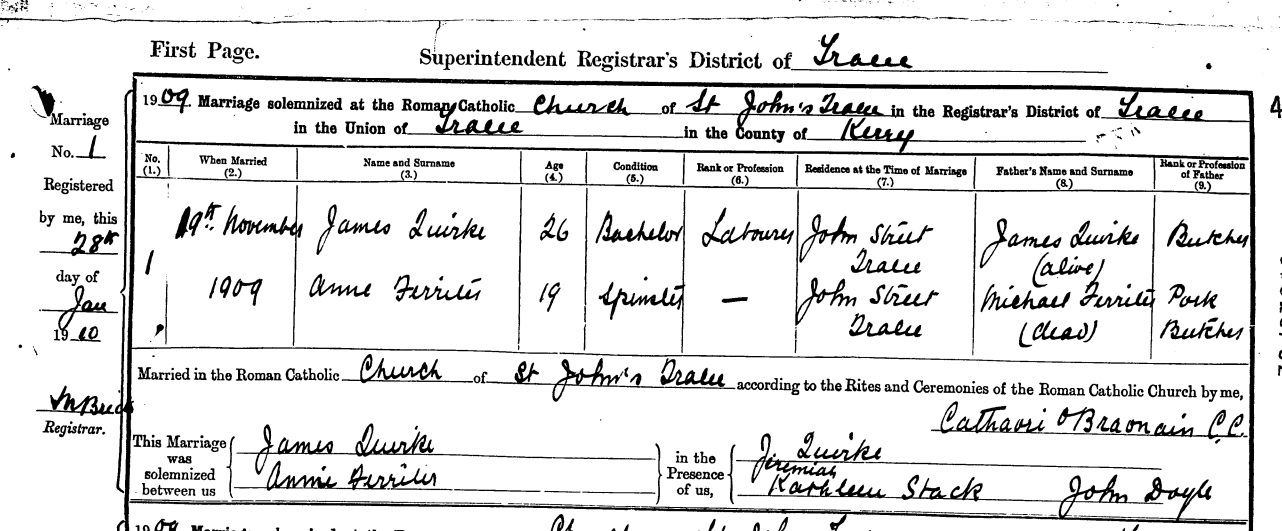 First Page. Superintendent Registrar's District of Tralee
1909 Marriage solemnized at the Roman Catholic Church of St John's Tralee in the Registrar's District of Tralee
in the Union of Tralee in the County of Kerry
Marriage
No. 1
Registered
by me, this
28th
day of
Jan
1910
Registrar.
No. (1.) When Married (2.) Name and Surname (3.) Age (4.) Condition (5.) Rank or Profession (6.) Residence at the Time of Marriage (7.) Father's Name and Surname (8.) Rank or Profession of Father (9.)
19th November James Quirke 26 Bachelor Labourer John Street Tralee James Quirke (alive) Butcher
1
1909 Anne Ferriter 19 Spinster — John Street Tralee Michael Ferriter (dead) Pork Butcher
Married in the Roman Catholic Church of St John's Tralee according to the Rites and Ceremonies of the Roman Catholic Church by me,
O'Braonain C.C.
This Marriage was solemnized between us
James Quirke
Annie Ferriter
in the Presence of us,
Jeremiah Quirke
Kathleen Stack John Doyle
1909